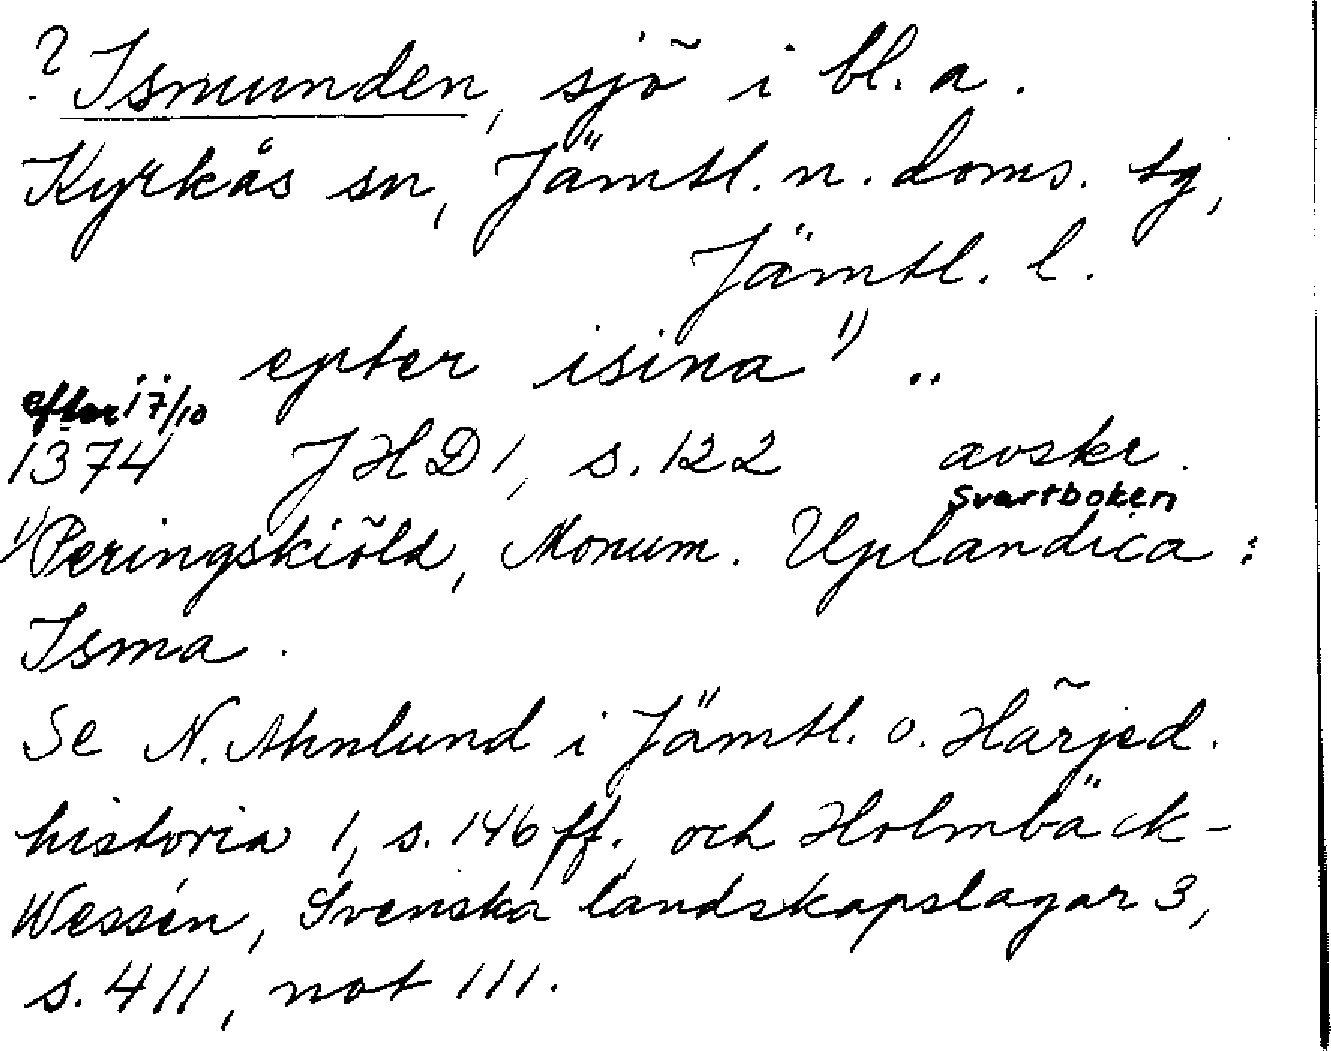 ? Ismunden, sjö i bl. a.
Kyrkås sn, Jämtl. n. doms. tg,
Jämtl. l.
.. epter isina 1) ..
efter 17/10
1374 JHD 1, s. 122 avskr.
Svartboken
1) Peringskiöld, Monum. Uplandica:
Isma.
Se N. Ahnlund i Jämtl. o. Härjed.
historia 1, s. 146 ff., och Holmbäck-
Wessén, Svenska landskapslagar 3,
s. 411, not 111.